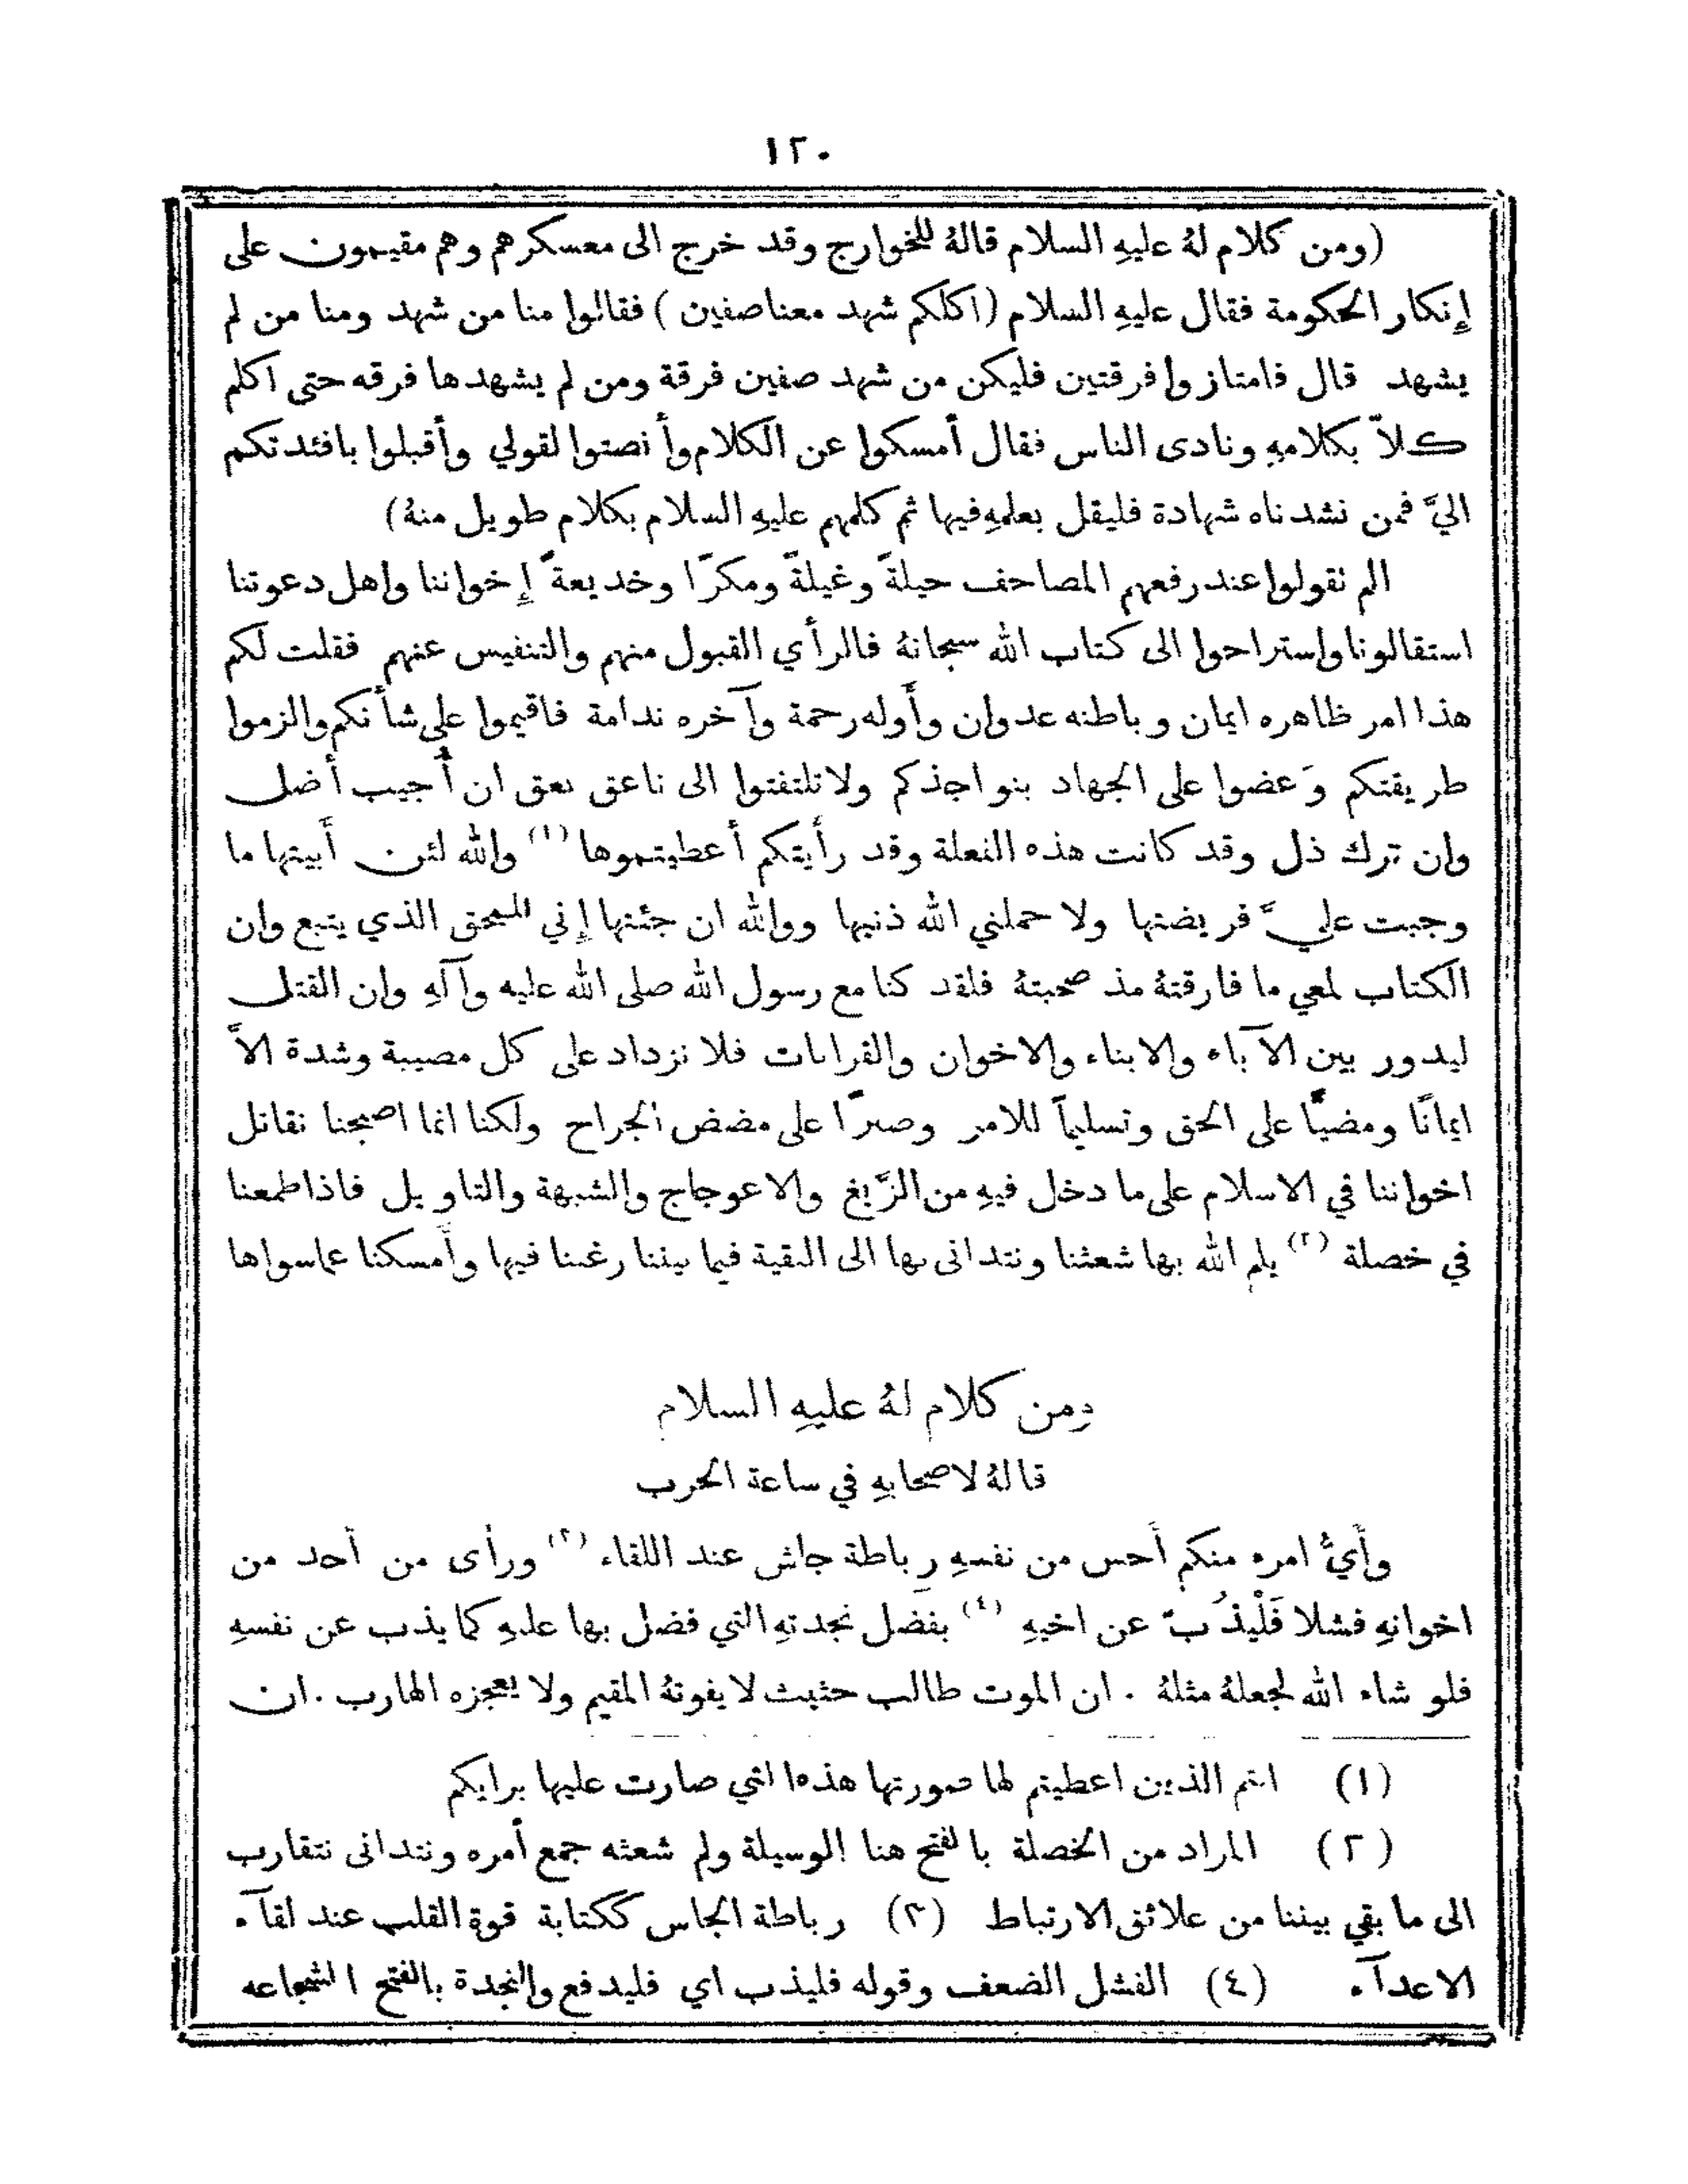 ١٢٠
(ومن كلام لهُ عليهِ السلام قالهُ للخوارج وقد خرج الى معسكرهم وهم مقيمون على
إنكار الحكومة فقال عليهِ السلام (اكلكم شهد معنا صفين) فقالوا منا من شهد ومنا من لم
يشهد قال فامتازوا فرقتين فليكن من شهد صفين فرقة ومن لم يشهدها فرقه حتى اكلم
كلاًّ بكلامهِ ونادى الناس فقال أمسكوا عن الكلام وأنصتوا لقولي وأقبلوا بافئدتكم
اليَّ فمن نشدناه شهادة فليقل بعلمهِ فيها ثم كلمهم عليهِ السلام بكلام طويل منهُ)
الم نقولوا عند رفعهم المصاحف حيلةً وغيلةً ومكرًا وخديعةً إخواننا واهل دعوتنا
استقالونا واستراحوا الى كتاب الله سبحانهُ فالرأي القبول منهم والتنفيس عنهم فقلت لكم
هذا امر ظاهره ايمان وباطنه عدوان وأوله رحمة وآخره ندامة فاقيموا على شأنكم والزموا
طريقتكم وَعضوا على الجهاد بنواجذكم ولا تلتفتوا الى ناعق نعق ان أُجيب أضل
وان ترك ذل وقد كانت هذه الفعلة وقد رأيتكم أعطيتموها (١) والله لئن أبيتها ما
وجبت عليَّ فريضتها ولا حملني الله ذنبها ووالله ان جئتها إني للمحق الذي يتبع وان
الكتاب لمعي ما فارقتهُ مذ صحبتهُ فلقد كنا مع رسول الله صلى الله عليه وآلهِ وان القتل
ليدور بين الآباء والابناء والاخوان والقرابات فلا نزداد على كل مصيبة وشدة الاَّ
ايمانًا ومضيًّا على الحق وتسليمًا للامر وصبرًا على مضض الجراح ولكنا انما اصبحنا نقاتل
اخواننا في الاسلام على ما دخل فيهِ من الزَّيغ والاعوجاج والشبهة والتاويل فاذا طمعنا
في خصلة (٢) يلم الله بها شعثنا ونتدانى بها الى البقية فيما بيننا رغبنا فيها وأمسكنا عما سواها
ومن كلام لهُ عليهِ السلام
قالهُ لاصحابهِ في ساعة الحرب
وأَيُّ امرء منكم أَحس من نفسهِ رِباطة جاش عند اللقاء (٣) ورأى من أحد من
اخوانهِ فشلا فَلْيذُبّ عن اخيهِ (٤) بفضل نجدتهِ التي فضل بها عليهِ كما يذب عن نفسهِ
فلو شاء الله لجعلهُ مثلهُ . ان الموت طالب حثيث لا يفوتهُ المقيم ولا يعجزه الهارب . ان
(١) انتم الذين اعطيتم لها صورتها هذه التي صارت عليها برايكم
(٢) المراد من الخصلة بالفتح هنا الوسيلة ولم شعثه جمع أمره ونتدانى نتقارب
الى ما بقي بيننا من علائق الارتباط (٣) رباطة الجاس ككتابة قوة القلب عند لقآء
الاعدآء (٤) الفشل الضعف وقوله فليذب اي فليدفع والنجدة بالفتح الشجاعه